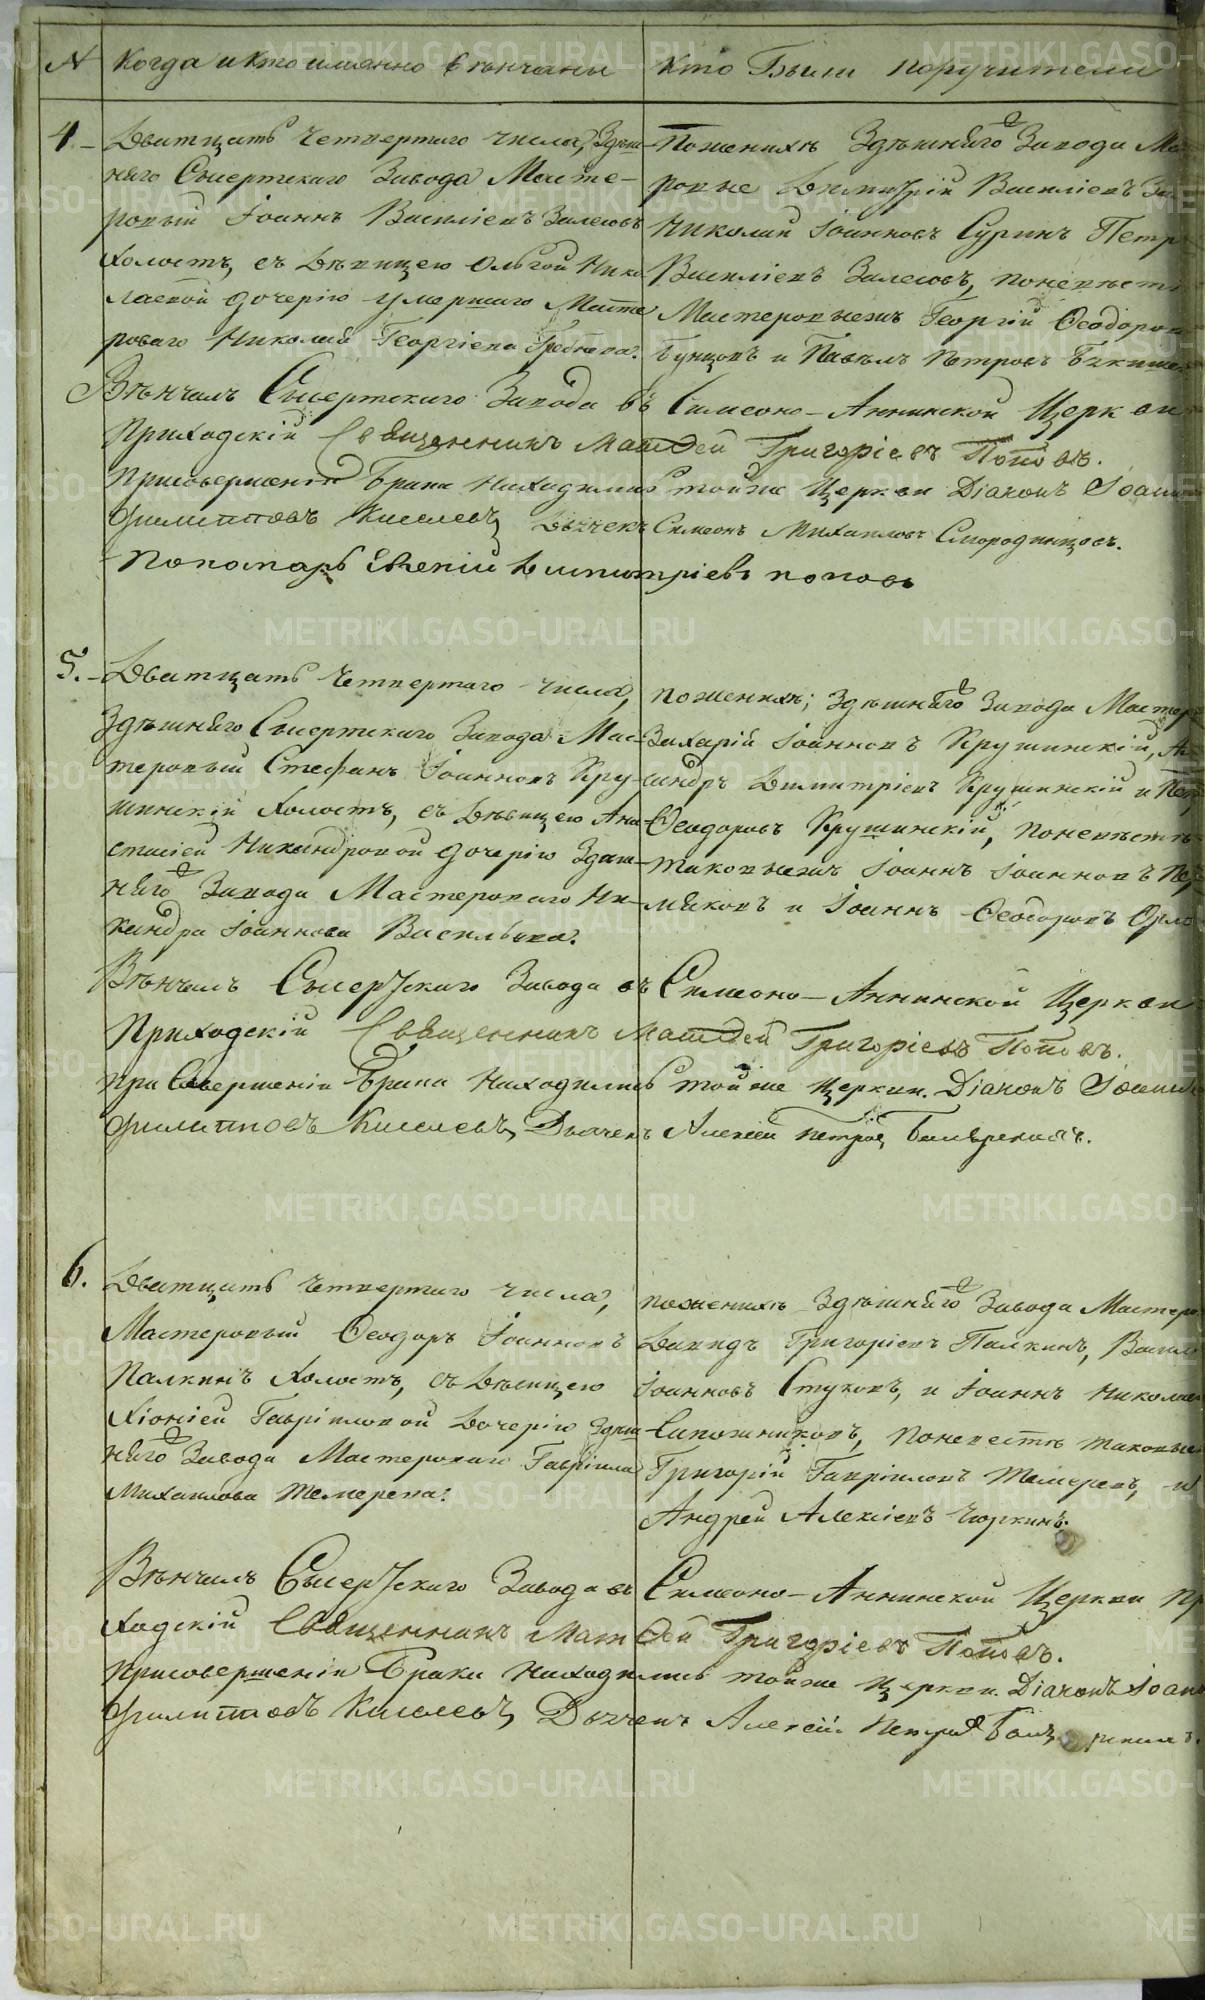 N Когда и кто именно венчаны Кто Были поручители
4 Дватцать Четвертаго числа, Здеш-
няго Сысертскаго Завода Масте-
ровый Іоаннъ Василіевъ Залесовъ
Холостъ, съ Девицею Ольгой Нико
лаевой дочерію умершаго Масте
роваго Николая Георгіева
По женихе Здешняго Завода Ма
ровые Димитрій Василіевъ
Николай Іоанновъ Суринъ Петр
Василіевъ Залесовъ, по невесте
Мастеровыехъ Георгій Феодоров
Бунцовъ и Павелъ Петровъ
Венчалъ Сысертскаго Завода въ Симеоно-Аннинской Церкви
Приходскій Священникъ Матфей Григоріевъ Поповъ.
При совершеніи Брака Находились тойже Церкви Діаконъ Іоанн
Филипповъ Киселевъ, Дьячекъ Симеонъ Михаиловъ Смородинцовъ.
Пономарь Евгений Димитріевъ поповъ
5. Дватцать Четвертаго числа,
Здешняго Сысертскаго Завода Мас-
теровый Стефанъ Іоанновъ Кру-
шинскій Холостъ, съ Девицею Ана
стасіей Никандровой дочерію Здеш-
няго Завода Мастероваго Ни-
кандра Іоаннова Васильева.
по женихе; Здешняго Завода Мастер
Захарій Іоанновъ Крушинскій, Ал
сандръ Димитріевъ Крушинскій и Пет
Феодоровъ Крушинскій, по невесте
таковыехъ Іоаннъ Іоанновъ
и Іоаннъ Феодоровъ Орло
Венчалъ Сысертскаго Завода въ Симеоно-Аннинской Церкви
Приходскій Священникъ Матфей Григоріевъ Поповъ.
При Совершеніи Брака Находились тойже Церкви. Діаконъ Іоанн
Филипповъ Киселевъ, Дьячекъ Алексей Петровъ
6. Дватцать Четвертаго числа,
Мастеровый Феодоръ Іоанновъ
Палкинъ Холостъ, съ Девицею
Хіоніей Гавріиловой Дочерію Здеш
няго Завода Мастероваго Гавріила
Михаилова Темерева.
по женихе Здешняго Завода Мастеро
Давидъ Григоріевъ Палкинъ, Васил
Іоанновъ Стуковъ, и Іоаннъ Николае
Сапожниковъ, по невесте таковые
Григорій Гавріиловъ Темеревъ, и
Андрей Алексіевъ Чюркинъ.
Венчалъ Сысертскаго Завода въ Симеоно-Аннинской Церкви Пр
ходскій Священникъ Матфей Григоріевъ Поповъ.
При совершеніи Брака Находились тойже Церкви. Діаконъ Іоанн
Филипповъ Киселевъ, Дьячекъ Алексій Петровъ
METRIKI.GASO-URAL.RU